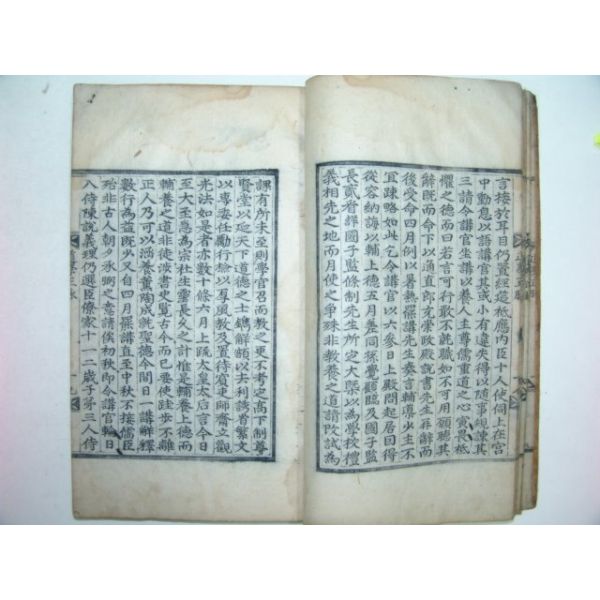 言接於耳目仍置經筵祗應內臣十人使伺上在宮
中動息以語講官其或小有違失得以隨事規諫其
三請令講官坐講以養人主尊儒重道之心寅畏祗
懼之德而曰若言可行敢不就職如不可用願聽其
辭既而命下以通直郎充崇政殿說書先生再辭而
後受命四月例以暑熱罷講先生奏言輔導少主不
宜踈略如此乞令講官以六參日上殿問起居因得
從容納誨以輔上德五月差同孫覺顧臨及國子監
長貳看詳國子監條制先生所定大槩以為學校禮
義相先之地而月使之爭殊非教養之道請改試為
課有所未至則學官召而教之更不考定高下制尊
賢堂以延天下道德之士鐫解額以去利誘省繁文
以專委任勵行檢以厚風教及置待賓吏師齋立觀
光法如是者亦數十條六月上疏太皇太后言今日
至大至急為宗社生靈長久之計惟是輔養上德而
輔養之道非徒涉書史覽古今而已要使跬步不離
正人乃可以涵養薰陶成就聖德今間日一講解釋
數行為益既少又自四月罷講直至中秋不接儒臣
殆非古人朝夕承弼之意請俟初秋即令講官輪日
入侍陳說義理仍選臣僚家十一二歲子弟三人侍